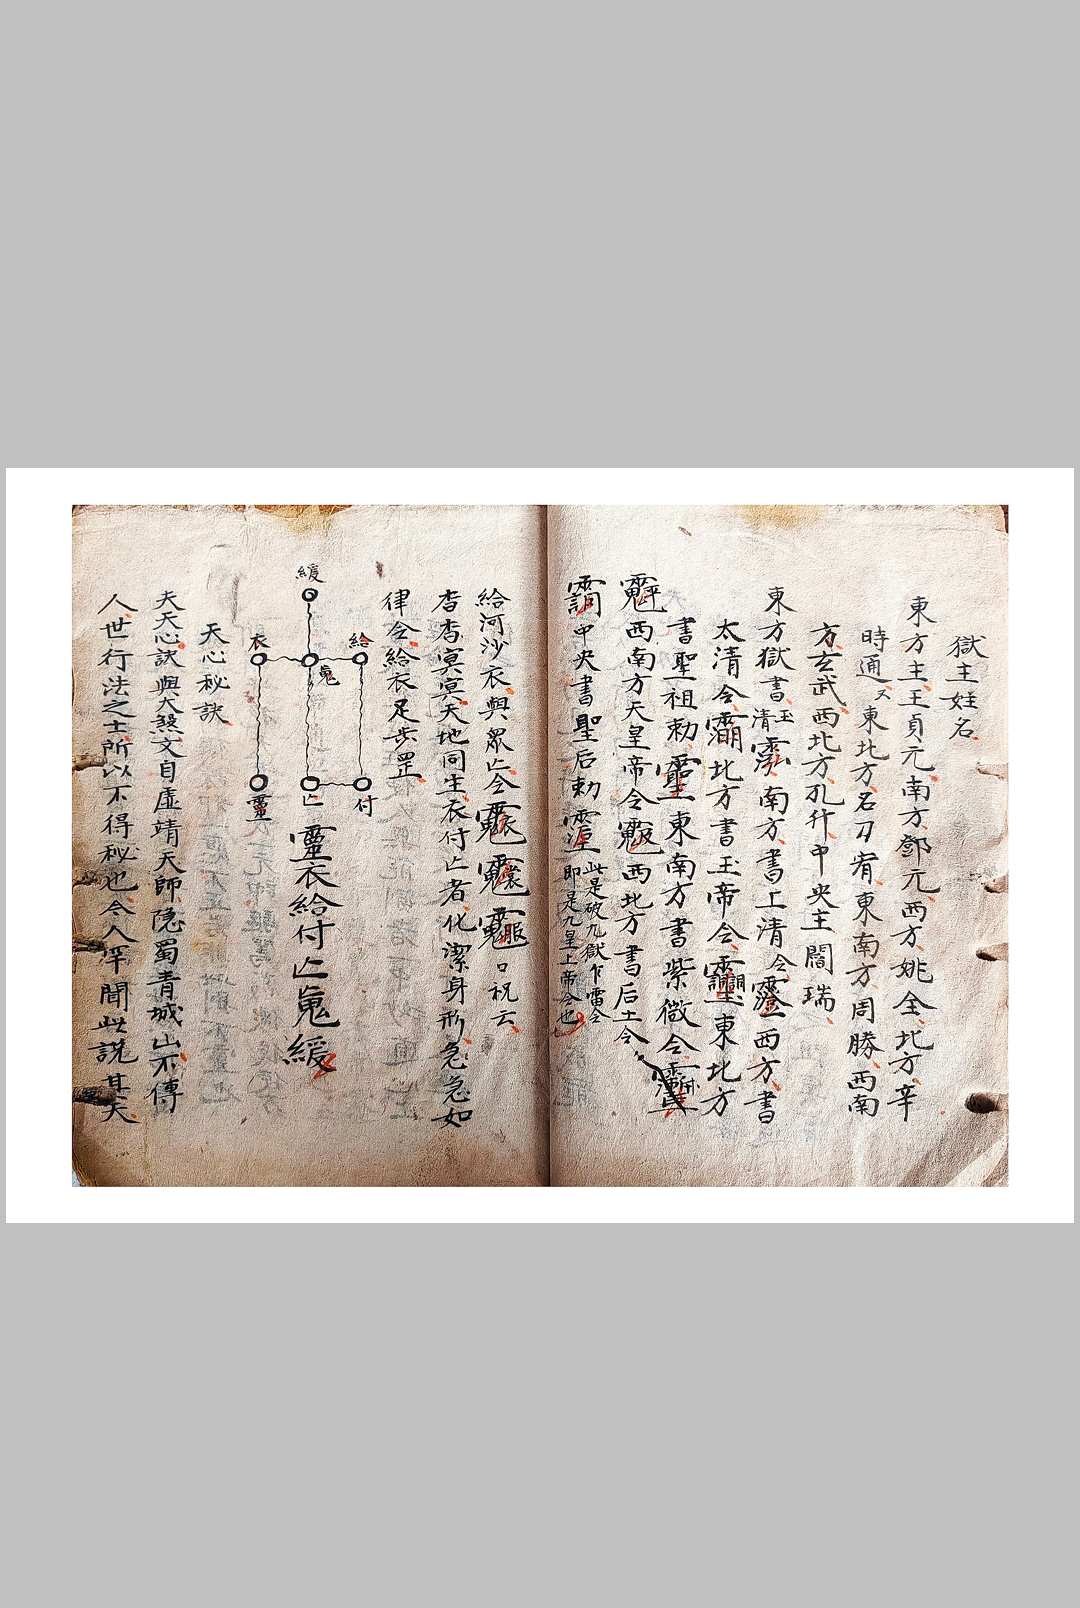 獄主姓名
東方主王貞元南方鄧元西方姚全北方辛
時通又東北方名刀宥東南方周勝西南
方玄武西北方孔什中央主閻瑞
東方獄書玉清南方書上清令西方書
太清令北方書玉帝令東北方
書聖祖勅東南方書紫微令
西南方天皇帝令西北方書后土令
中央書聖后勅
此是破九獄乍雷令
即是九皇上帝令也
給河沙衣與眾亡令口祝云
杳杳冥冥天地同生衣付亡者化潔身形急急如
律令給衣足步罡
緩
衣 給
嵬
靈 亡 付
靈衣給付亡嵬緩
天心秘訣
夫天心訣與大煞文自虛靖天師隐蜀青城山不傳
人世行法之士所以不得秘也令人罕聞此說其天